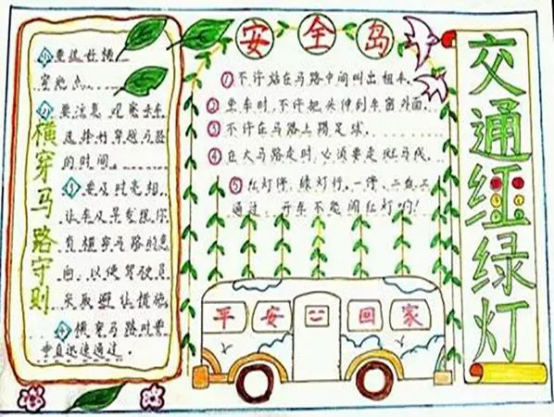 交通红绿灯
安全岛
①不许站在马路中间叫出租车。
②坐车时,不许把头伸到车窗外面。
③不许在马路上踢足球。
④在大马路走时,必须要走斑马线。
⑤红灯停,绿灯行。一停、二看、三
通过,开车不能闯红灯哟!
横穿马路守则
①要选好横
穿地点。
②要注意观察来车
选择好穿越马路
的时间。
③要及时亮相,
让车及早发现你
有横穿马路的意
向,以便驾驶员
采取避让措施。
④横穿马路时要
垂直迅速通过。
平安回家